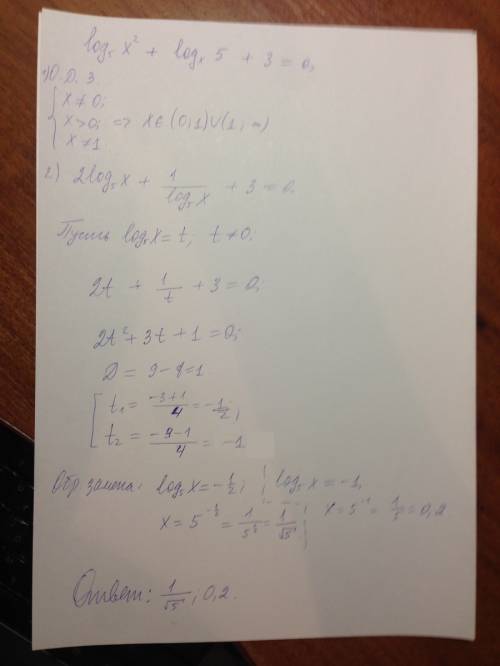 log₅ x² + logₓ 5 + 3 = 0;
1) О.Д.З.
{ x ≠ 0;
x > 0; => x ∈ (0;1)∪(1;∞)
x ≠ 1
2) 2log₅x + 1/log₅x + 3 = 0.
Пусть log₅x = t, t ≠ 0;
2t + 1/t + 3 = 0;
2t² + 3t + 1 = 0;
D = 9 - 8 = 1
[ t₁ = (-3+1)/4 = -1/2;
t₂ = (-3-1)/4 = -1
Обр. замена: log₅x = -1/2; | log₅x = -1,
x = 5^(-1/2) = 1/5^(1/2) = 1/√5 | x = 5^(-1) = 1/5 = 0,2
Ответ: 1/√5; 0,2.